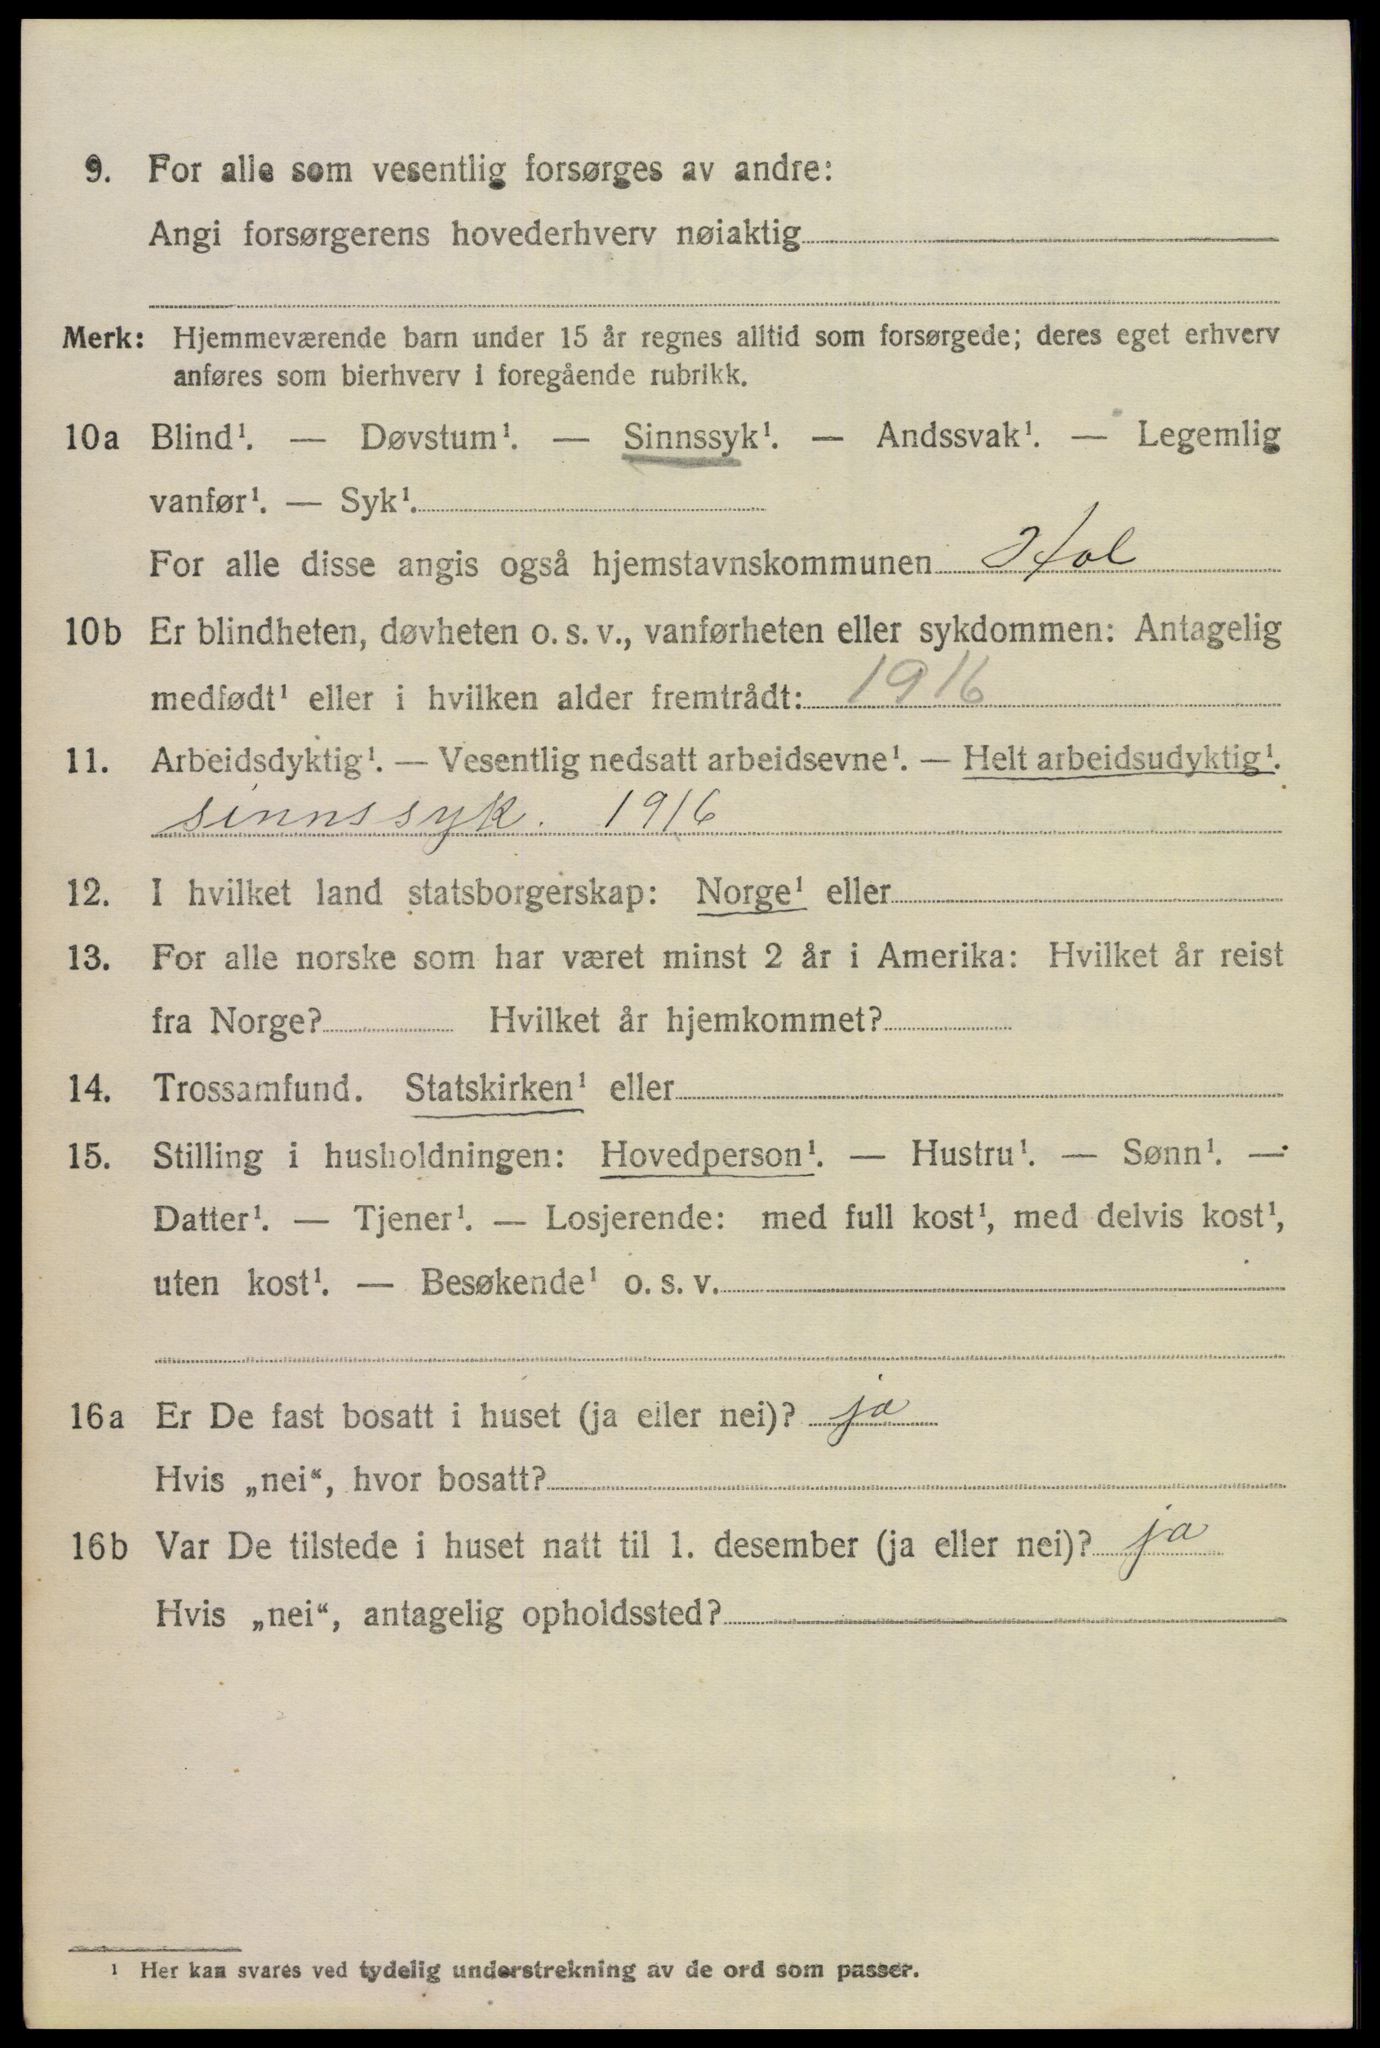 9. For alle som vesentlig forsørges av andre:
Angi forsørgerens hovederhverv nøiaktig
Merk: Hjemmeværende barn under 15 år regnes alltid som forsørgede; deres eget erhverv
anføres som bierhverv i foregående rubrikk.
10a Blind¹. — Døvstum¹. — Sinnssyk¹. — Andssvak¹. — Legemlig
vanfør¹. — Syk¹.
For alle disse angis også hjemstavnskommunen Hol
10b Er blindheten, døvheten o. s. v., vanførheten eller sykdommen: Antagelig
medfødt¹ eller i hvilken alder fremtrådt: 1916
11. Arbeidsdyktig¹. — Vesentlig nedsatt arbeidsevne¹. — Helt arbeidsudyktig¹.
sinnssyk. 1916
12. I hvilket land statsborgerskap: Norge¹ eller
13. For alle norske som har været minst 2 år i Amerika: Hvilket år reist
fra Norge? Hvilket år hjemkommet?
14. Trossamfund. Statskirken¹ eller
15. Stilling i husholdningen: Hovedperson¹. — Hustru¹. — Sønn¹. —
Datter¹. — Tjener¹. — Losjerende: med full kost¹, med delvis kost¹,
uten kost¹. — Besøkende¹ o. s. v.
16a Er De fast bosatt i huset (ja eller nei)? ja
Hvis „nei“, hvor bosatt?
16b Var De tilstede i huset natt til 1. desember (ja eller nei)? ja
Hvis „nei“, antagelig opholdssted?
¹ Her kan svares ved tydelig understrekning av de ord som passer.